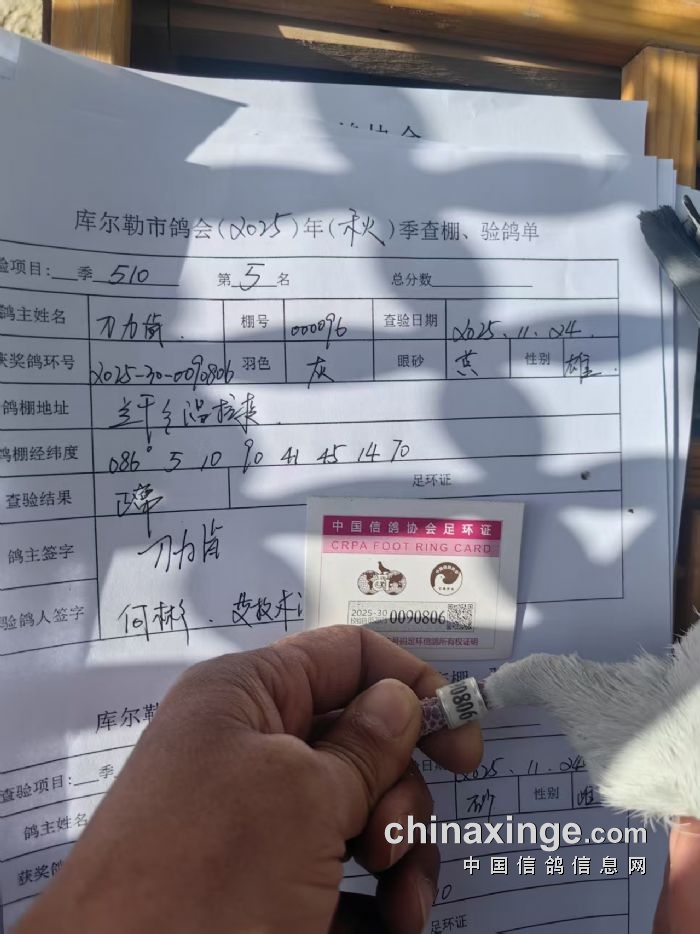 库尔勒市鸽会(2025)年(秋)季查棚、验鸽单
验项目: 季 510 第 5 名 总分数
鸽主姓名 刀力肯 棚号 000096 查验日期 2025.11.24
获奖鸽环号 2025-30-0090806 羽色 灰 眼砂 黄 性别 雄
鸽棚地址
鸽棚经纬度 086° 5 10 90 41 45 14 70
查验结果 正常 足环证
鸽主签字 刀力肯
验鸽人签字 何彬.
中国信鸽协会足环证
CRPA FOOT RING CARD
2025-30
0090806
号码足环信鸽所有权证明
90806
库尔勒
查验项目: 季
日期 2025.11.24
鸽主姓名 砂 性别 雄
获奖鸽
10
足环证
chinaxinge.com
中国信鸽信息网